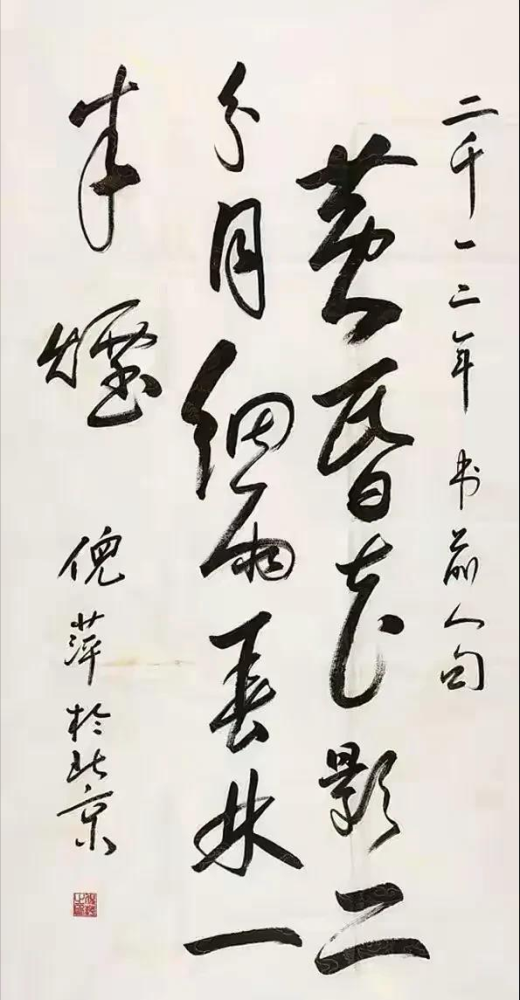 二千一三年 书前人句
黄昏花影二
分月细雨春林一
半烟
倪萍於北京